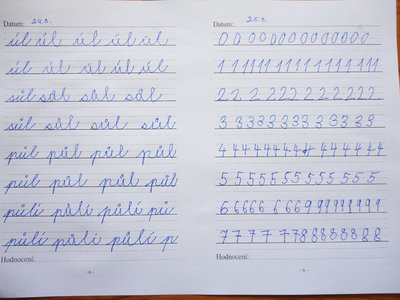 Datum: 24.3.
úl úl úl úl úl
úl úl úl úl úl
sůl sůl sůl sůl
sůl sůl sůl sůl
půl půl půl půl
půl půl půl půl
půlí půlí půlí pů
půlí půlí půlí p
Hodnocení:
Datum: 25.3.
0 0 0 0 0 0 0 0 0 0 0 0 0 0 0
1 1 1 1 1 1 1 1 1 1 1 1 1 1 1 1 1
2 2 2 2 2 2 2 2 2 2 2 2 2
3 3 3 3 3 3 3 3 3 3 3 3 3
4 4 4 4 4 4 4 4 4 4 4 4 4 4 4 4
5 5 5 5 5 5 5 5 5 5 5 5 5 5
6 6 6 6 6 6 6 6 6 9 9 9 9 9 9 9 9 9
7 7 7 7 7 7 8 8 8 8 8 8 8
Hodnocení:
- 5 -